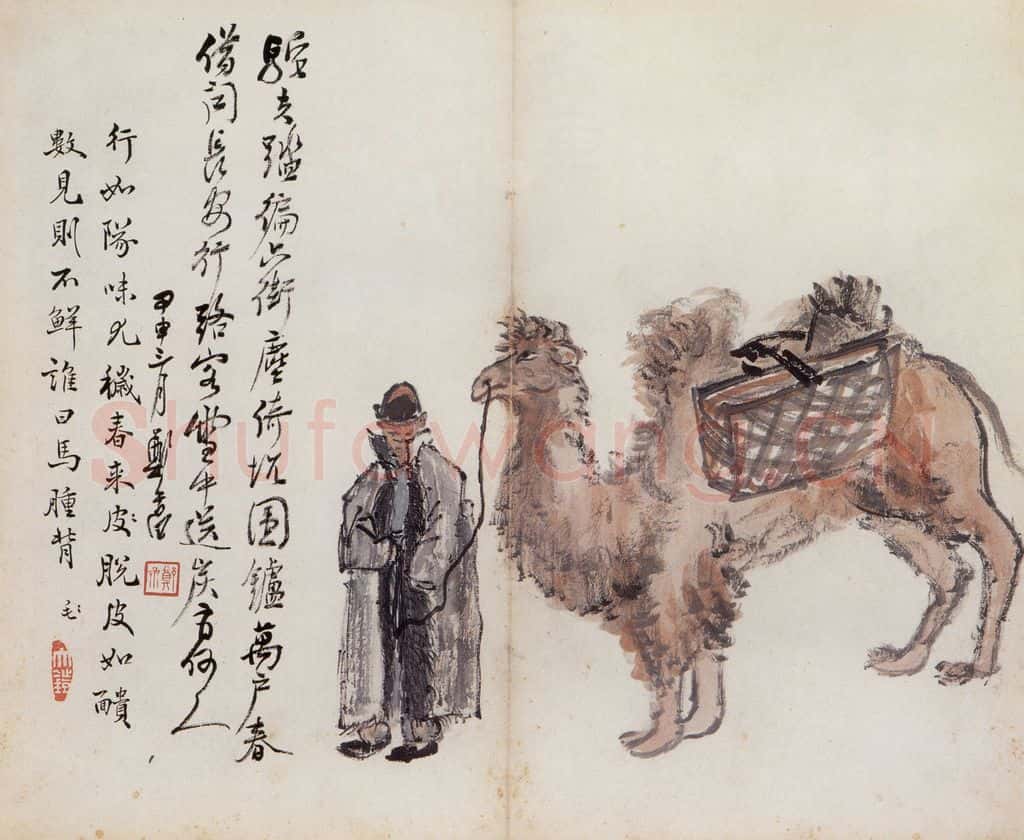 駝夫踏徧六街塵倚炕圍鑪萬戶春
借問長安行路客雪中送炭何人
甲申三月
行如隊味尤穢春來皮脫皮如靧
數見則不鮮誰曰馬腫背
Shufawang.CN